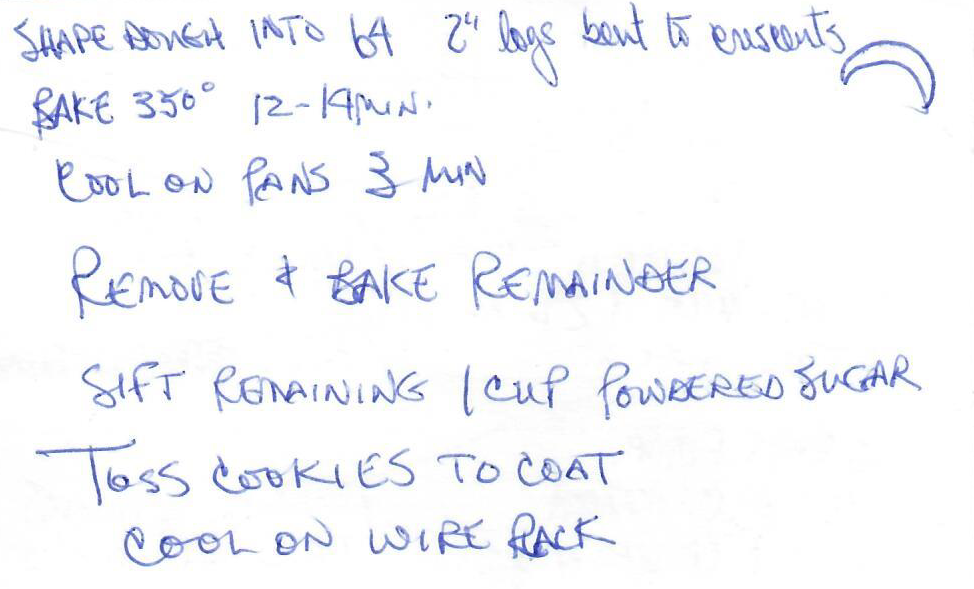 SHAPE DOUGH INTO 64 2" logs bent to crescents
BAKE 350° 12-14 MIN.
COOL ON PANS 3 MIN
REMOVE & BAKE REMAINDER
SIFT REMAINING 1 CUP POWDERED SUGAR
TOSS COOKIES TO COAT
COOL ON WIRE RACK